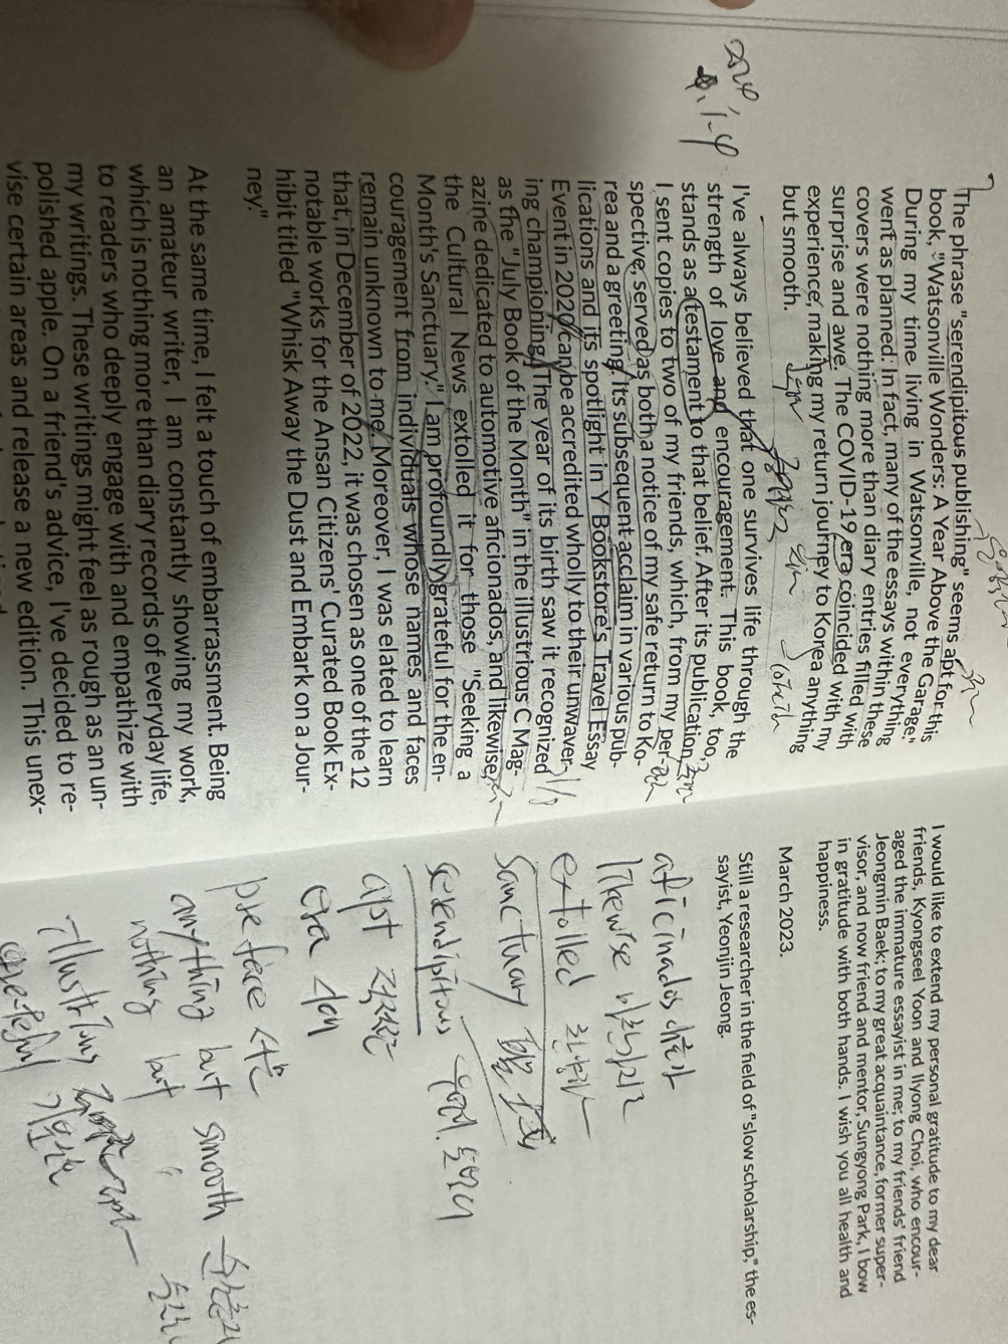 The phrase "serendipitous publishing" seems apt for this
book, "Watsonville Wonders: A Year Above the Garage."
During my time living in Watsonville, not everything
went as planned. In fact, many of the essays within these
covers were nothing more than diary entries filled with
surprise and awe. The COVID-19 era coincided with my
experience, making my return journey to Korea anything
but smooth.
I've always believed that one survives life through the
strength of love and encouragement. This book, too,
stands as a testament to that belief. After its publication,
I sent copies to two of my friends, which, from my per-
spective, served as both a notice of my safe return to Ko-
rea and a greeting. Its subsequent acclaim in various pub-
lications and its spotlight in Y Bookstore's Travel Essay
Event in 2020 can be accredited wholly to their unwaver-
ing championing. The year of its birth saw it recognized
as the "July Book of the Month" in the illustrious C Mag-
azine dedicated to automotive aficionados, and likewise,
the Cultural News extolled it for those "Seeking a
Month's Sanctuary." I am profoundly grateful for the en-
couragement from individuals whose names and faces
remain unknown to me. Moreover, I was elated to learn
that, in December of 2022, it was chosen as one of the 12
notable works for the Ansan Citizens' Curated Book Ex-
hibit titled "Whisk Away the Dust and Embark on a Jour-
ney."
At the same time, I felt a touch of embarrassment. Being
an amateur writer, I am constantly showing my work,
which is nothing more than diary records of everyday life,
to readers who deeply engage with and empathize with
my writings. These writings might feel as rough as an un-
polished apple. On a friend's advice, I've decided to re-
vise certain areas and release a new edition. This unex-
I would like to extend my personal gratitude to my dear
friends, Kyongseel Yoon and Ilyong Choi, who encour-
aged the immature essayist in me; to my friends' friend
Jeongmin Baek; to my great acquaintance, former super-
visor, and now friend and mentor, Sungyong Park, I bow
in gratitude with both hands. I wish you all health and
happiness.
March 2023.
Still a researcher in the field of "slow scholarship," the es-
sayist, Yeonjin Jeong.
aficinados 애호가
likewise 마찬가지로
extolled
Sanctuary
serendipitous
apt 적절한
era 시대
preface 서문
anything but smooth
nothing but